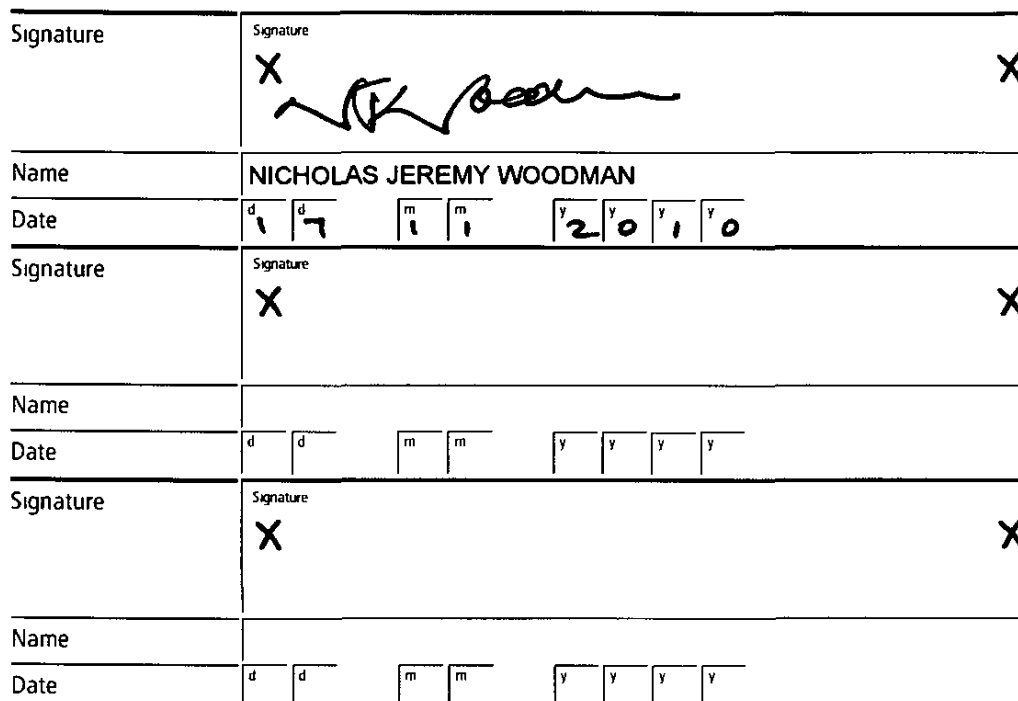 Signature Signature
X X
Name NICHOLAS JEREMY WOODMAN
Date d 1 d 7 m 1 m 1 y 2 y 0 y 1 y 0
Signature Signature
X X
Name
Date d d m m y y y y
Signature Signature
X X
Name
Date d d m m y y y y